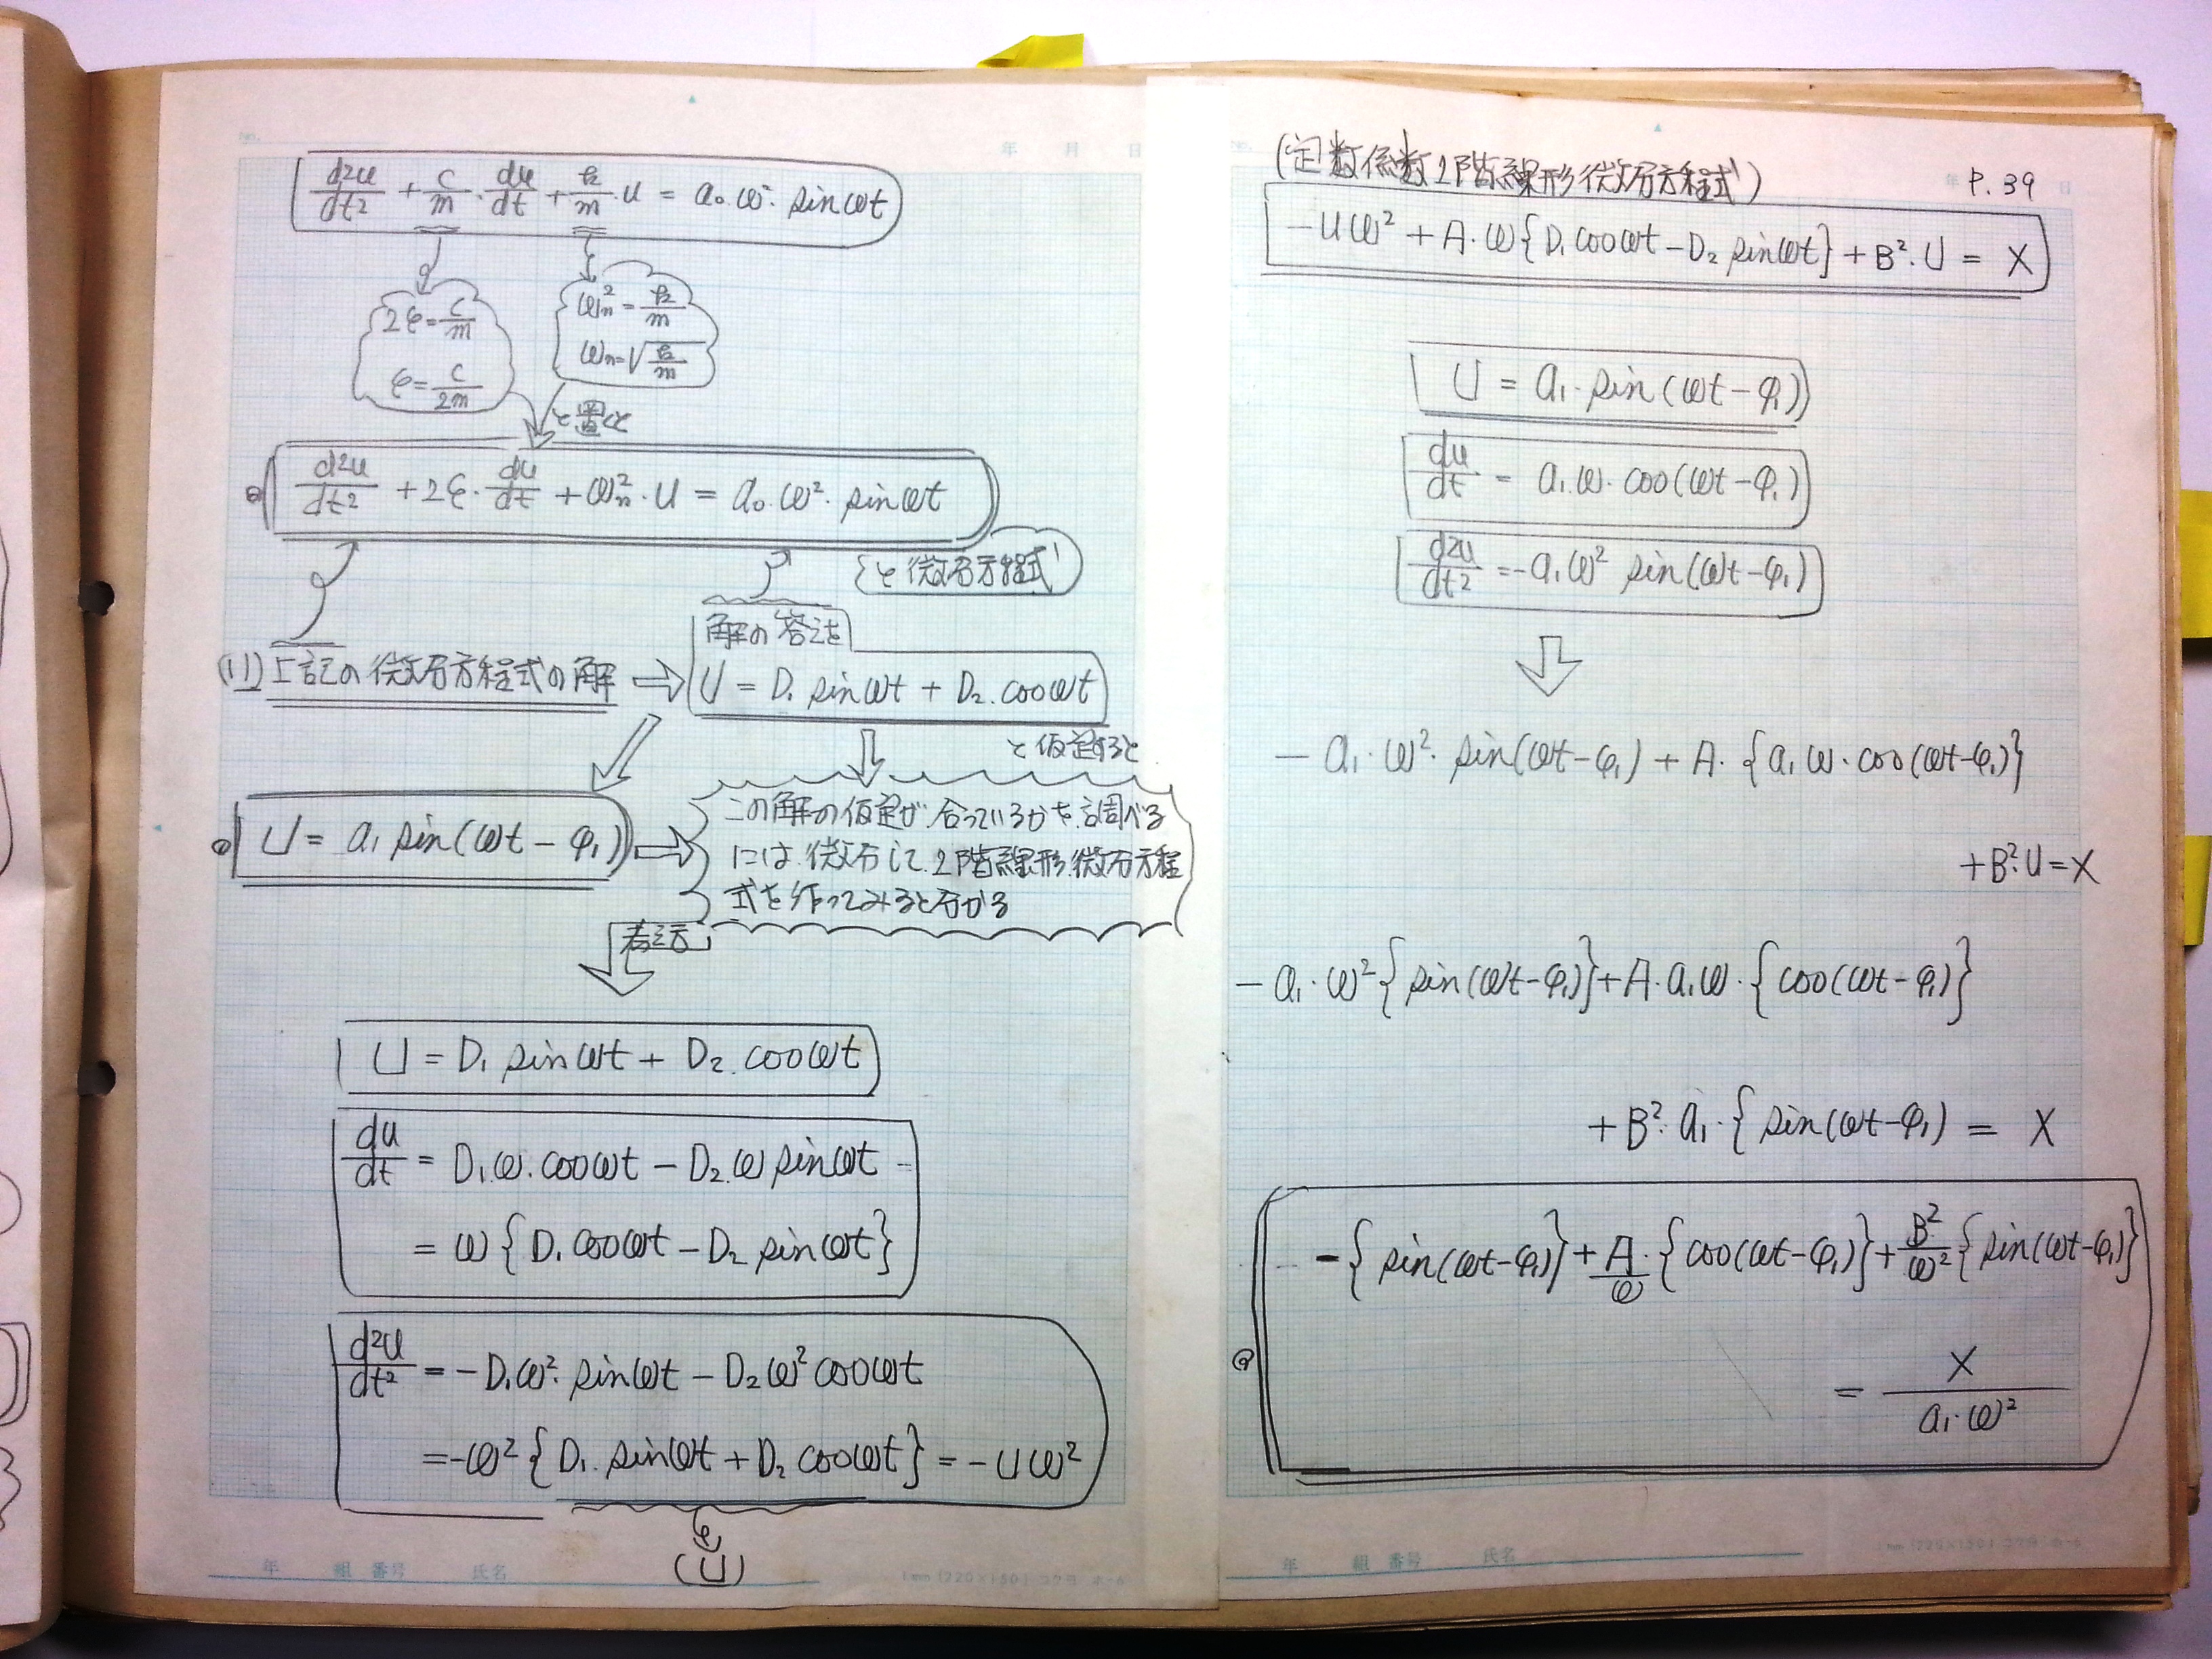 d²u/dt² + c/m · du/dt + k/m · u = a₀·ω²· sinωt
2ε = c/m
ε = c/2m
ωn² = k/m
ωn = √k/m
と置くと
d²u/dt² + 2ε· du/dt + ωn²·u = a₀·ω²· sinωt
と微分方程式
(11) 上記の微分方程式の解
解の答えを
U = D₁ sinωt + D₂.cosωt
と仮定すると
U = a₁ sin(ωt − φ₁)
この解の仮定が、合っているかを、調べる
には、微分して、2階線形、微分方程
式を作ってみると分かる
考え方
U = D₁ sinωt + D₂.cosωt
du/dt = D₁.ω.cosωt − D₂.ω sinωt
= ω{D₁ cosωt − D₂ sinωt}
d²u/dt² = −D₁ω²· sinωt − D₂ω² cosωt
= −ω²{D₁. sinωt + D₂ cosωt} = −Uω²
(U)
年 組 番号 氏名
(定数係数2階線形微分方程式)
P.39
−Uω² + A·ω{D₁ cosωt − D₂ sinωt} + B²·U = X
U = a₁· sin(ωt − φ₁)
du/dt = a₁.ω. cos(ωt − φ₁)
d²u/dt² = −a₁ω² sin(ωt − φ₁)
− a₁·ω²· sin(ωt − φ₁) + A· {a₁ω·cos(ωt − φ₁)}
+ B²·U = X
− a₁·ω²{sin(ωt − φ₁)} + A·a₁ω·{cos(ωt − φ₁)}
+ B²·a₁·{sin(ωt − φ₁) = X
−{sin(ωt − φ₁)} + A/ω·{cos(ωt − φ₁)} + B²/ω²{sin(ωt − φ₁)}
= X/a₁·ω²
年 組 番号 氏名